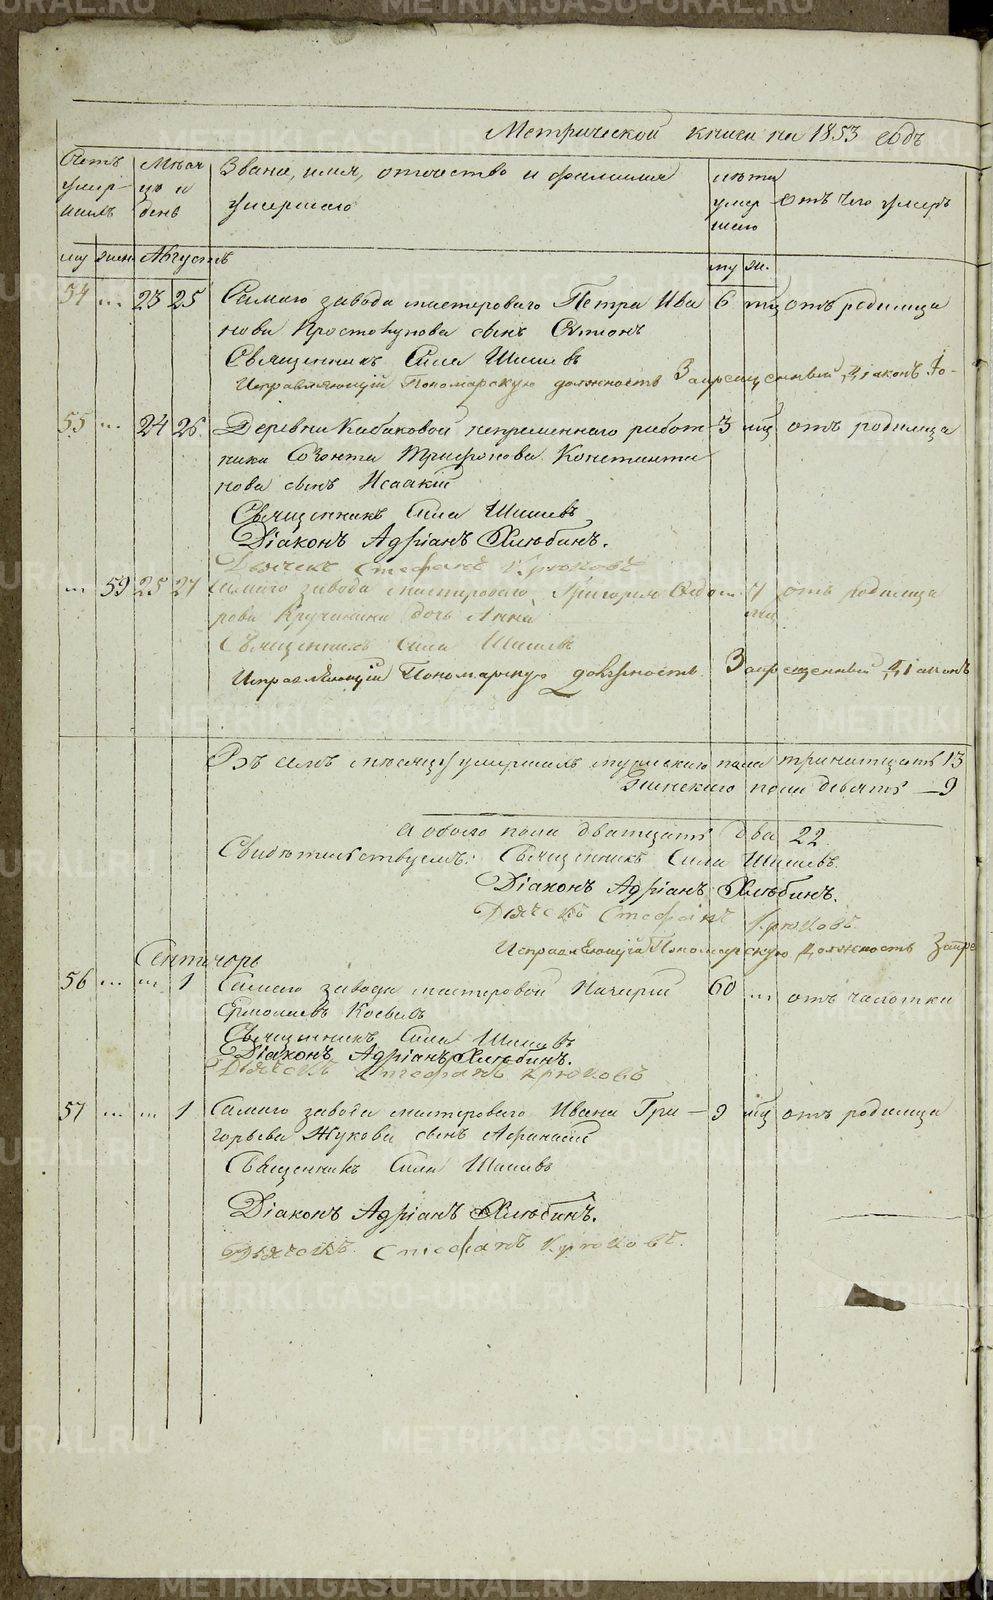 Метрической книги на 1853 годъ
Счетъ умершихъ
Мѣсяцъ и день
Званіе, имя, отчество и фамилія умершаго
лѣта умершаго
отъ чего умеръ
му жен Августъ му ж.
54 ... 23 25 Самаго завода мастероваго Петра Ива 6 мц отъ родимца
нова Простокупова сынъ Симеонъ
Священникъ Сила Шишевъ
Исправляющій Пономарскую должность Запрещенный Діаконъ
55 ... 24 26 Деревни Кабаковой непременнаго работ 3 мц отъ родимца
ника Созонта Трифонова Константи
нова сынъ Исаакій
Священникъ Сила Шишевъ
Діаконъ Адріанъ Хлѣбинъ.
Дьячекъ Стефанъ Крюковъ
... 59 25 27 Самаго завода мастероваго Григорья Ѳедо 7 отъ родимца
рова Кручинина дочь Анна мц
Священникъ Сила Шишевъ
Исправляющій Пономарскую должность Запрещенный Діаконъ
Въ семъ мѣсяцѣ умершихъ мужескаго пола тринатцать 13
Женскаго пола девять 9
А обоего пола дватцать два 22
Свидѣтельствуемъ: Священникъ Сила Шишевъ
Діаконъ Адріанъ Хлѣбинъ.
Дьячекъ Стефанъ Крюковъ
Исправляющій Пономарскую должность Запре
Сентябрь
56 ... ... 1 Самаго завода мастеровой 60 ... отъ чахотки
Ермолаевъ
Священникъ Сила Шишевъ
Діаконъ Адріанъ Хлѣбинъ.
Дьячекъ Стефанъ Крюковъ
57 ... ... 1 Самаго завода мастероваго Ивана Гри 9 мц отъ родимца
горьева Жукова сынъ Афанасій
Священникъ Сила Шишевъ
Діаконъ Адріанъ Хлѣбинъ.
Дьячекъ Стефанъ Крюковъ.
METRIKI.GASO-URAL.RU